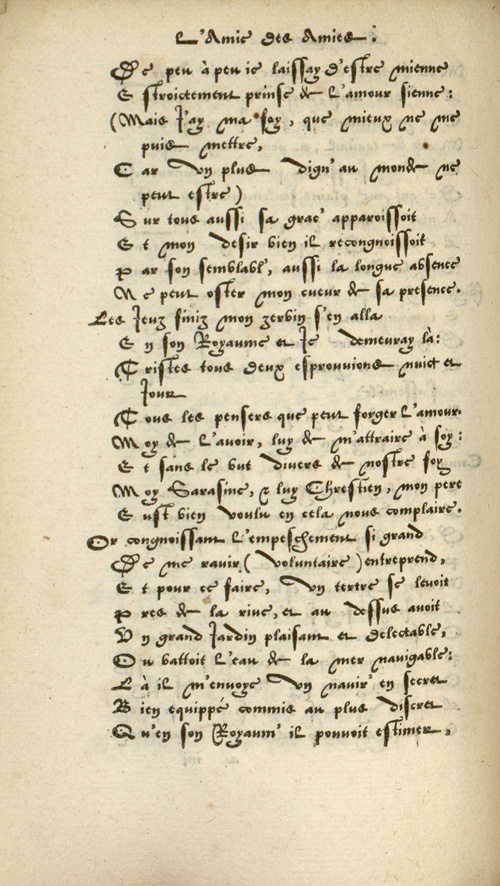 L'Amie des Amies.
De peu à peu ie laissay d'estre mienne
Estroictement prinse de L'amour sienne:
(Mais J'ay ma foy, que mieux ne me
puis mettre,
Car vn plus dign' au monde ne
peut estre)
Sur tous aussi sa grac' apparoissoit
Et mon desir bien il recongnoissoit
Par son semblabl', aussi la longue absence
Ne peut oster mon cueur de sa presence.
Les Jeuz finiz mon zerbin s'en alla
En son Royaume et Je demeuray là:
Tristes tous deux esprouvions nuict et
Jour
Tous les pensers que peut forger L'amour.
Moy de L'avoir, luy de m'attraire à soy:
Et sans le but divers de nostre foy
Moy Sarasine, & luy Chrestien, mon pere
Eust bien voulu en cela nous complaire.
Or congnoissant L'empeschement si grand
De me ravir (voluntaire) entreprend,
Et pour ce faire, vn tertre se levoit
Pres de la rive, et au dessus avoit
Vn grand Jardin plaisant et delectable,
Ou battoit L'eau de la mer navigable:
Là il m'envoye vn navir' en secret
Bien equippé commis au plus discret
Qu'en son Royaum' il pouvoit estimer,